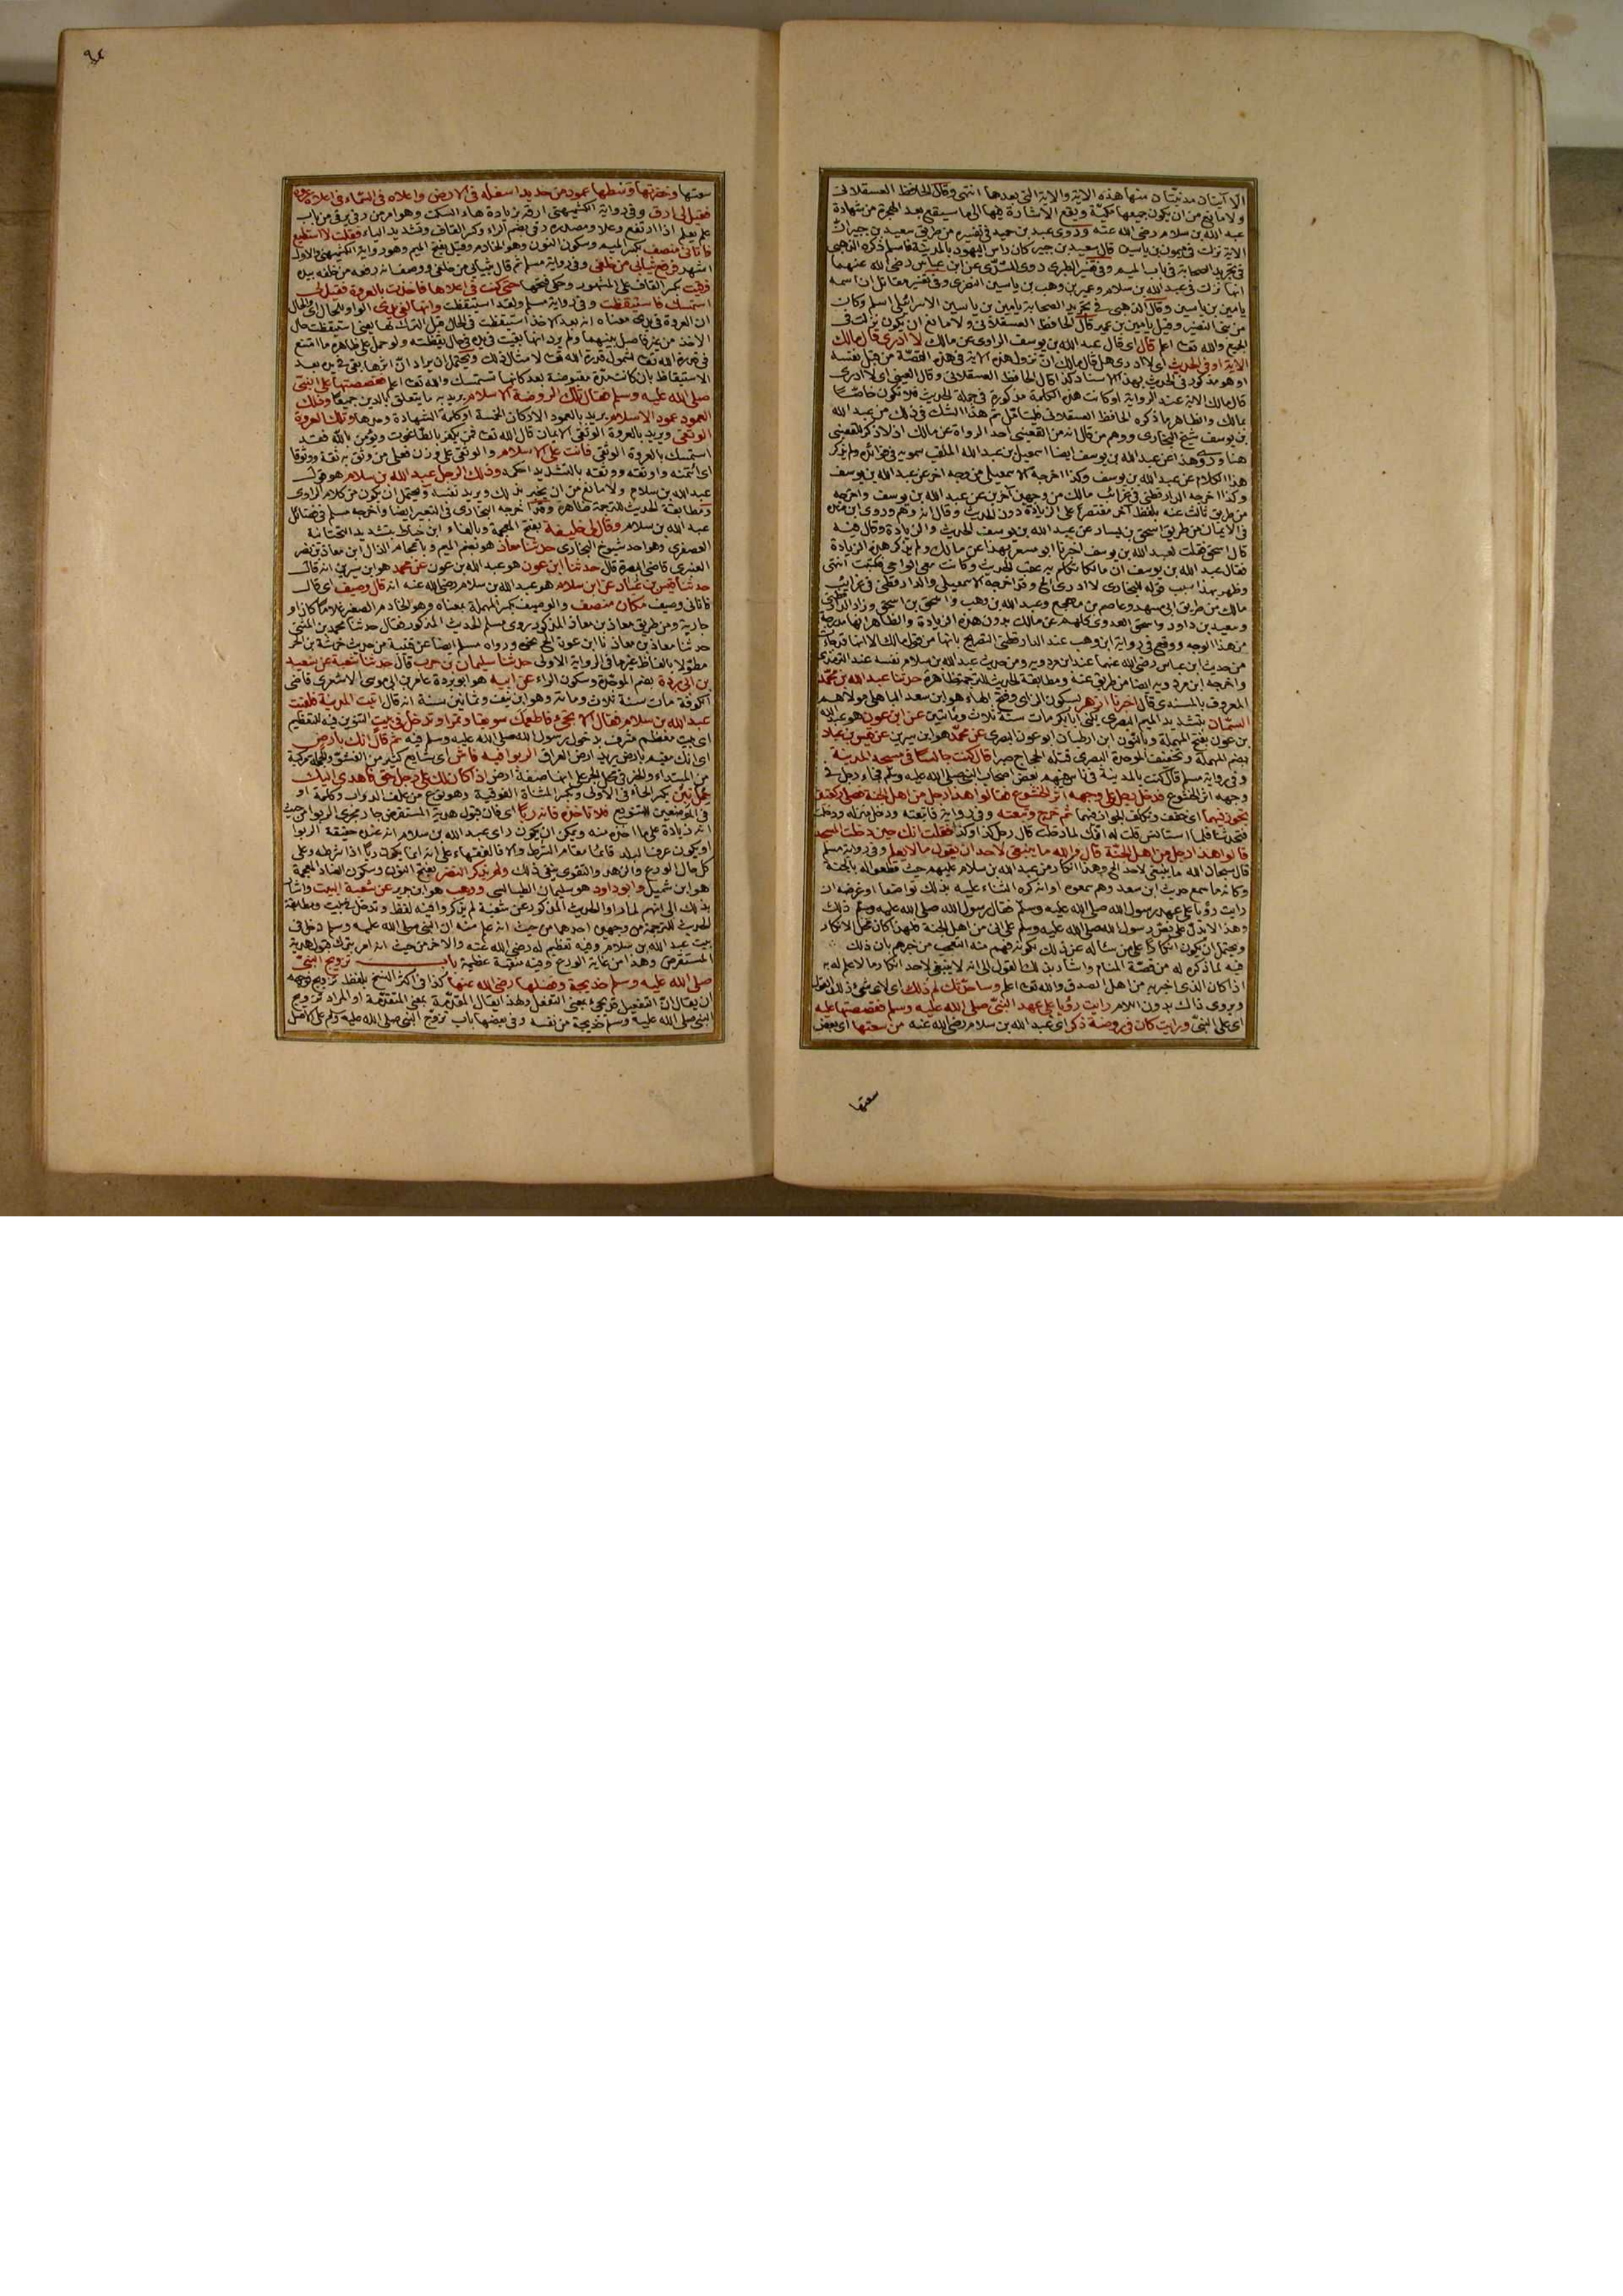 الا آيتان مدنيتان منها هذه الآية والآية التي بعدها انتهى وقال الحافظ العسقلاني
ولا مانع من ان يكون جميعها مكية ويقع الاشارة فيها الى ما سيقع بعد الهجرة من شهادة
عبد الله بن سلام رضي الله عنه وروى عبد بن حميد في تفسيره من طريق سعيد بن جبير ان
الآية نزلت في ميمون بن يامين
انها نزلت في عبد الله بن سلام وعمير بن وهب بن يامين النضري وفي تفسير مقاتل ان اسمه
يامين بن يامين وقال الذهبي في تجريد الصحابة يامين بن يامين الاسرائيلي اسلم وكان
من بني النضير وقيل يامين بن عمير قال الحافظ العسقلاني ولا مانع ان يكون نزلت في
الجميع والله تعالى اعلم قال اي قال عبد الله بن يوسف الراوي عن مالك لا ادري قال مالك
الآية او في الحديث اي لا ادري هل قال مالك ان نزول هذه الآية في هذه القصة من قبل نفسه
او هو مذكور في الحديث بهذا الاسناد كذا قال الحافظ العسقلاني وقال العيني اي لا ادري
قال مالك الآية عند الرواية او كانت هذه الكلمة مذكورة في جملة الحديث فلا تكون خاصا
بمالك والظاهر ما ذكره الحافظ العسقلاني
بن يوسف شيخ البخاري ووهم من قال انه من القعنبي احد الرواة عن مالك اذ لا ذكر للقعنبي
هنا وروى هذا عن عبد الله بن يوسف ايضا اسمعيل بن عبد الله الملقب سمويه في فوائده ولم يذكر
هذا الكلام عن عبد الله بن يوسف وكذا اخرجه الاسمعيلي من وجه اخر عن عبد الله بن يوسف
وكذا اخرجه الدارقطني في غرائب مالك من وجهين آخرين عن عبد الله بن يوسف واخرجه
من طريق ثالث عنه بلفظ آخر مقتصرا على الزيادة دون الحديث وقال انه وهم وروى ابن منده
في الايمان من طريق اسحق بن يسار عن عبد الله بن يوسف الحديث والزيادة وقال فيه
قال اسحق فقلت لعبد الله بن يوسف اخبرنا ابو مسهر بهذا عن مالك ولم يذكر هذه الزيادة
فقال عبد الله بن يوسف ان مالكا تكلم به عقب الحديث وكانت معي الواحي فكتبت انتهى
وظهر بهذا سبب قوله للبخاري لا ادري الخ وقد اخرجه الاسمعيلي والدارقطني في غرائب
مالك من طريق ابي مسهر وعاصم بن مهجع وعبد الله بن وهب واسحق بن
وسعيد بن داود واسحق الفروي كلهم عن مالك بدون هذه الزيادة والظاهر انها مدرجة
من هذا الوجه ووقع في رواية ابن وهب عند الدارقطني التصريح بانها من قول مالك الا انها قد جاءت
من حديث ابن عباس رضي الله عنهما عند ابن مردويه ومن حديث عبد الله بن سلام نفسه عند الترمذي
واخرجه ابن مردويه ايضا من طريق عنه ومطابقة الحديث للترجمة ظاهرة حدثنا عبد الله بن محمد
المعروف بالمسندي قال اخبرنا ازهر بسكون الزاي وفتح الهاء هو ابن سعد الباهلي مولاهم
السمان بتشديد الميم البصري يكنى ابا بكر مات سنة ثلاث ومائتين عن ابن عون هو عبد الله
بن عون بفتح المهملة وبالنون ابن ارطبان ابو عون البصري عن محمد هو ابن سيرين عن قيس بن عباد
بضم المهملة وتخفيف الموحدة البصري قتله الحجاج صبرا قال كنت جالسا في مسجد المدينة
وفي رواية مسلم قال كنت بالمدينة في ناس فيهم بعض اصحاب النبي صلى الله عليه وسلم فجاء رجل في
وجهه اثر الخشوع فدخل رجل على وجهه اثر الخشوع فقالوا هذا رجل من اهل الجنة فصلى ركعتين
تجوز فيهما اي خفف وتكلف الجواز فيهما ثم خرج وتبعته وفي رواية فاتبعته ودخل منزله ودخلت
فتحدثنا فلما استأنس قلت له انك لما دخلت قال رجل كذا وكذا فقلت انك حين دخلت المسجد
قالوا هذا رجل من اهل الجنة قال والله ما ينبغي لاحد ان يقول ما لا يعلم وفي رواية مسلم
قال سبحان الله ما ينبغي لاحد الخ وهذا انكار من عبد الله بن سلام عليهم حيث قطعوا له بالجنة
وكأنه ما سمع حديث ابن سعد وهم سمعوه او انه كره الثناء عليه بذلك تواضعا او غرضه ان
رايت رؤيا على عهد رسول الله صلى الله عليه وسلم فقال رسول الله صلى الله عليه وسلم ذلك
وهذا لا يدل على نص رسول الله صلى الله عليه وسلم على اني من اهل الجنة فلهذا كان محل الانكار
ويحتمل ان يكون انكارا على من سأله عن ذلك بكونه فهم منه التعجب من خبرهم بان ذلك
فيه لما ذكره له من قصة المنام واشار بذلك القول الى انه لا ينبغي لاحد انكار ما لا علم له به
اذا كان الذي اخبر به من اهل الصدق والله تعالى اعلم وساحدثك لم ذلك
ويروى ذاك بدون اللام رايت رؤيا على عهد النبي صلى الله عليه وسلم فقصصتها عليه
اي على النبي ورايت كان في روضة ذكر اي عبد الله بن سلام رضي الله عنه من سعتها اي بعض
سعتها
سعتها وخضرتها وسطها عمود من حديد اسفله في الارض واعلاه في السماء في اعلاه عروة
فقيل لي ارق وفي رواية الكشميهني ارقه بزيادة هاء السكت وهو امر من رقي يرقى من باب
علم يعلم اذا ارتفع وعلا ومصدره رقي بضم الراء وكسر القاف وتشديد الياء فقلت لا استطيع
فاتاني منصف بكسر الميم وسكون النون وهو الخادم وقيل بفتح الميم وهو رواية الكشميهني والاول
اشهر فرفع ثيابي من خلفي وفي رواية مسلم ثم قال بثيابي من خلفي ووصف انه رفعه من خلفه بيده
فرقيت بكسر القاف على المشهور وحكى فتحها حتى كنت في اعلاها فاخذت بالعروة فقيل لي
استمسك فاستيقظت وفي رواية مسلم ولقد استيقظت وانها لفي يدي الواو للحال اي والحال
ان العروة في يدي معناه انه بعد الاخذ استيقظت في الحال قبل الترك لها يعني استيقظت حال
الاخذ من غير فاصل بينهما ولم يرد انها بقيت في يده في حال يقظته ولو حمل على ظاهره ما امتنع
في قدرة الله تعالى لشمول قدرة الله تعالى لامثال ذلك ويحتمل ان يراد ان اثرها بقي في يده بعد
الاستيقاظ بان كانت يده مقبوضة بعد كانها تستمسك والله تعالى اعلم فقصصتها على النبي
صلى الله عليه وسلم فقال تلك الروضة الاسلام يريد به ما يتعلق بالدين جميعا وذلك
العمود عمود الاسلام يريد بالعمود الاركان الخمسة او كلمة الشهادة وحدها وتلك العروة
الوثقى ويريد بالعروة الوثقى الايمان قال الله تعالى فمن يكفر بالطاغوت ويؤمن بالله فقد
استمسك بالعروة الوثقى فانت على الاسلام والوثقى على وزن فعلى من وثق به ثقة ووثوقا
اي ائتمنه واوثقه ووثقه بالتشديد احكمه وذلك الرجل عبد الله بن سلام هو قول
عبد الله بن سلام ولا مانع من ان يخبر بذلك ويريد نفسه ويحتمل ان يكون من كلام الراوي
ومطابقة الحديث للترجمة ظاهرة وقد اخرجه البخاري في التعبير ايضا واخرجه مسلم في فضائل
عبد الله بن سلام وقال لي خليفة بفتح المعجمة وبالفاء ابن خياط بتشديد التحتانية
العصفري وهو احد شيوخ البخاري حدثنا معاذ هو بضم الميم وباعجام الذال ابن معاذ بن نصر
العنبري قاضي البصرة قال حدثنا ابن عون هو عبد الله بن عون عن محمد هو ابن سيرين انه قال
حدثنا قيس بن عباد عن ابن سلام هو عبد الله بن سلام رضي الله عنه انه قال وصيف اي قال
فاتاني وصيف مكان منصف والوصيف بكسر المهملة بمعناه وهو الخادم الصغير غلاما كان او
جارية ومن طريق معاذ بن معاذ المذكور روى مسلم الحديث المذكور فقال حدثنا محمد بن المثنى
حدثنا معاذ بن معاذ نا ابن عون الخ نحوه ورواه مسلم ايضا عن قتيبة من حديث خرشة بن الحر
مطولا بالفاظ غير ما في الرواية الاولى حدثنا سليمان بن حرب قال حدثنا شعبة عن سعيد
بن ابي بردة بضم الموحدة وسكون الراء عن ابيه هو ابو بردة عامر بن ابي موسى الاشعري قاضي
الكوفة مات سنة ثلاث ومائة وهو ابن نيف وثمانين سنة انه قال اتيت المدينة فلقيت
عبد الله بن سلام فقال الا تجيء فاطعمك سويقا وتمرا وتدخل في بيت التنوين فيه للتعظيم
اي بيت معظم مشرف بدخول رسول الله صلى الله عليه وسلم فيه ثم قال انك بارض
اي انك مقيم بارض يريد ارض العراق الربوا فيه فاش اي شايع كثير من الفشو والجملة مركبة
من المبتداء والخبر في محل الجر على انها صفة لارض اذا كان لك على رجل حق فاهدى اليك
حمل تبن بكسر الحاء في الاولى وكسر المثناة الفوقية وهو نوع من علف الدواب وكلمة او
في الموضعين للتنويع فلا تأخذه فانه ربا اي فان قبول هدية المستقرض جار مجرى الربوا من حيث
انه زيادة على ما اخذه منه ويمكن ان يكون راي عبد الله بن سلام انه عنده حقيقة الربوا
او يكون عرف البلد قائما مقام الشرط والا فالفقهاء على انه انما يكون ربا اذا شرطه وعلى
كل حال الورع والزهد والتقوى ينفي ذلك ولم يذكر النضر بفتح النون وسكون الضاد المعجمة
هو ابن شميل وابو داود هو سليمان الطيالسي ووهب هو ابن جرير عن شعبة البيت واشار
بذلك الى انهم لما رووا الحديث المذكور عن شعبة لم يذكروا فيه لفظ وتدخل في بيت ومطابقة
الحديث للترجمة من وجهين احدهما من حيث انه علم منه ان النبي صلى الله عليه وسلم دخل في
بيت عبد الله بن سلام وفيه تعظيم له رضي الله عنه والاخر من حيث انه امر بترك قبول هدية
المستقرض وهذا من غاية الورع وفيه منقبة عظيمة باب تزويج النبي
صلى الله عليه وسلم خديجة وفضلها رضي الله عنها كذا في اكثر النسخ بلفظ تزويج توجيهه
ان يقال ان التفعيل قد يجيء بمعنى التفعل ولهذا يقال المقدمة بمعنى المتقدمة او المراد تزويج
النبي صلى الله عليه وسلم خديجة من نفسه وفي بعضها باب تزوج النبي صلى الله عليه وسلم على الاصل